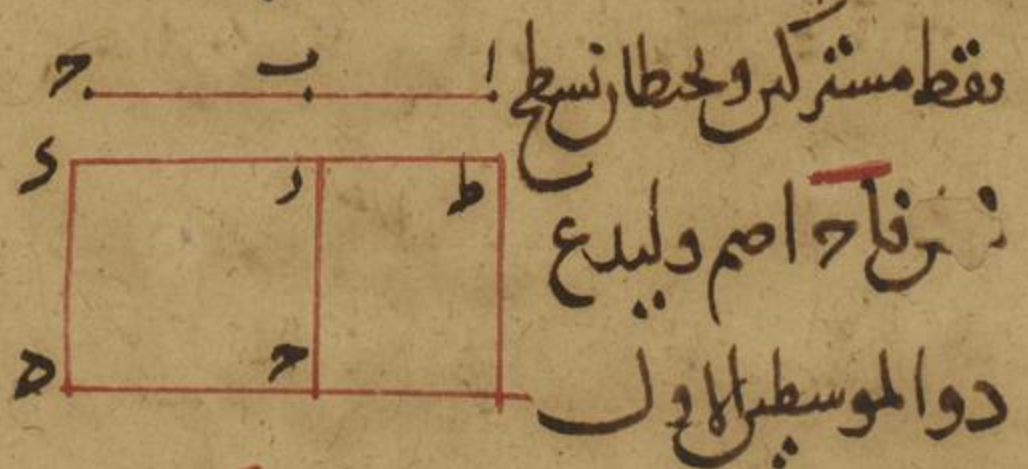 فقط مشتركين ويحيطان بسطح
فاح اصم وليدع
ذو الموسطين الاول
ا ب ح
ط ر د
ح ه